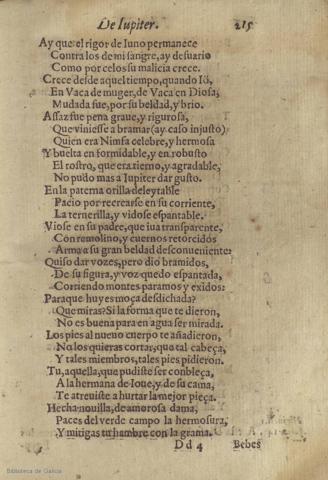 De Iupiter. 215
Ay que el rigor de Iuno permanece
Contra los de mi sangre, ay desuario
Como por celos su malicia crece.
Crece desde aquel tiempo, quando Iô,
En Vaca de muger, de Vaca en Diosa,
Mudada fue, por su beldad, y brio.
Assaz fue pena graue, y rigurosa,
Que viniesse a bramar (ay caso injusto)
Quien era Nimfa celebre, y hermosa
Y buelta en formidable, y en robusto
El rostro, que era tierno, y agradable,
No pudo mas a Iupiter dar gusto.
En la paterna orilla deleytable
Pacio por recrearse en su corriente,
La ternerilla, y vidose espantable.
Viose en su padre, que iua transparente,
Con remolino, y cuernos retorcidos
Arma a su gran beldad desconueniente:
Quiso dar vozes, pero dio bramidos,
De su figura, y voz quedo espantada,
Corriendo montes paramos y exidos:
Para que huyes moça desdichada?
Que miras? Si la forma que te dieron,
No es buena para en agua ser mirada.
Los pies al nueuo cuerpo te añadieron,
No los quieras cortar, que tal cabeça,
Y tales miembros, tales pies pidieron.
Tu, aquella, que pudiste ser conbleça,
A la hermana de Ioue, y de su cama,
Te atreuiste a hurtar la mejor pieça.
Hecha nouilla, de amorosa dama,
Paces del verde campo la hermosura,
Y mitigas tu hambre con la grama.
D d 4 Bebes
Biblioteca de Galicia